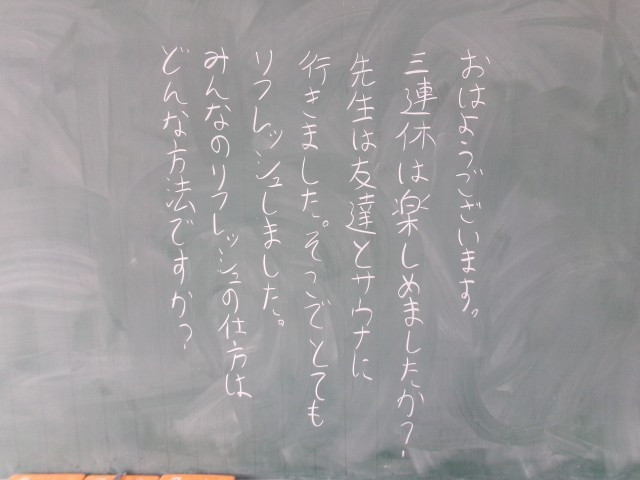 おはようございます。
三連休は楽しめましたか?
先生は友達とサウナに
行きました。そこでとても
リフレッシュしました。
みんなのリフレッシュの仕方は
どんな方法ですか?